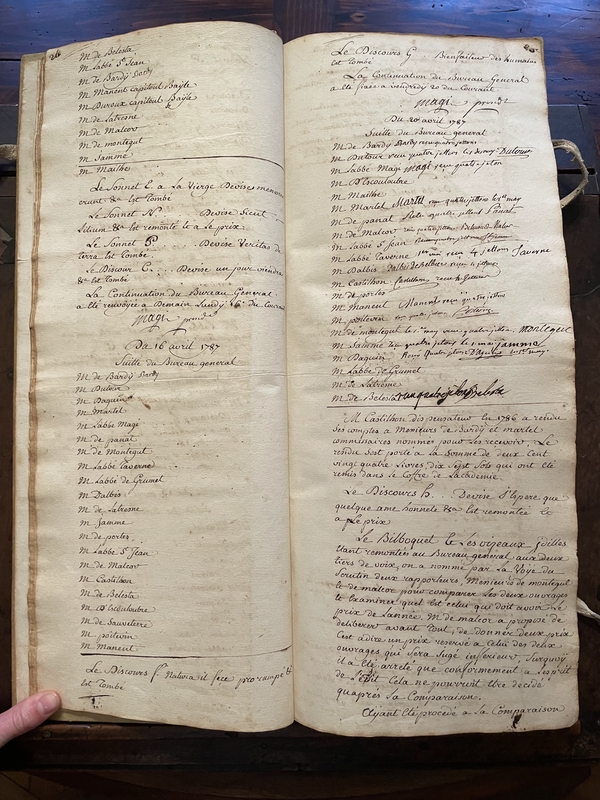 M de Belesta
M Labbé St Jean
M de Bardy Bardy
M Manent capitoul Bayle
M Bureux capitoul Bayle
M de Latresne
M de Malcor
M de montegut
M Jamme
M Maithe
Le Sonnet C. a La Vierge Devise memor
Le Sonnet N. Devise Sicut
Lilium &c est remonté Lo a Le prix
Le Sonnet Devise Veritas de
terra est Tombé
Le Discour C. Devise un jour viendra
&c est Tombé
La Continuation du Bureau General
a été renvoyée a Demain Lundy 16 du Courant
Magi
Du 16 avril 1787
Suitte du Bureau general
M de Bardy Bardy
M Dutour
M Daguin
M Martel
M Labbé Magi
M de panat
M de Montegut
M Labbé Taverne
M Labbé de Grumet
M Dalbis
M de Latresne
M Jamme
M de portes
M Labbé St Jean
M de Malcor
M Castilhon
M de Belesta
M D'Escouloubre
M de Sauveterre
M poitevin
M Manent
Le Discours f. Natura sil fece pro rompé &
est Tombé
Le Discours G Bienfaiteur des humains
est Tombé
La Continuation du Bureau General
a été fixée a Vendredy 20 du Courant
Magi
Du 20 avril 1787
Suitte du Bureau general
M de Bardy Bardy reçu quatre jettons
M Dutour reçu quatre jettons Dutour
M Labbé Magi Magi reçu quatre jetons
M D'Escouloubre
M Maithe
M Martel Martel reçu quatre jettons le 1er may
M de panat Reçu quatre jettons Panat
M de Malcor
M Labbé St jean
M Labbé Taverne 4 jettons Taverne
M Dalbis
M Castilhon Castilhon reçu
M de portes
M Manent Manent reçu quatre jettons
M poitevin
M de montegut quatre jettons. Montegut
M Jamme reçu quatre jetons le 1 mai Jamme
M Daguin Reçu quatre jetons Daguin
M Labbé de Grumet
M de Latresne
M de Belesta reçu quatre jetons Belesta
M Castilhon dispensateur en 1786 a rendu
ses comptes a Messieurs de Bardy et martel
commissaires nommés pour les recevoir, Le
rendu s'est porté a la somme de deux Cent
vingt quatre livres dix sept sols qui ont été
remis dans le Coffre de Lacademie.
Le Discours h. Devise J'espere que
quelque ame honnete &c est remontée Lo
a Le prix
Le Bilboquet et Les oyseaux, idilles
étant remontées au Bureau general aux deux
tiers de voix, on a nommé par La Voye du
Scrutin deux rapporteurs, Messieurs de montegut
et de malcor pour comparer Les deux ouvrages
et Examiner quel est celui qui doit avoir Le
prix de L'année. M de malcor a proposé de
deliberer avant tout, de donner deux prix
C'est a dire un prix reservé a Celui des deux
ouvrages qui sera jugé inferieur, Surquoy
il a été arreté que conformement a L'esprit
de L'Edit Cela ne pourroit etre decidé
qu'après La Comparaison.
Ayant été procedé a La Comparaison